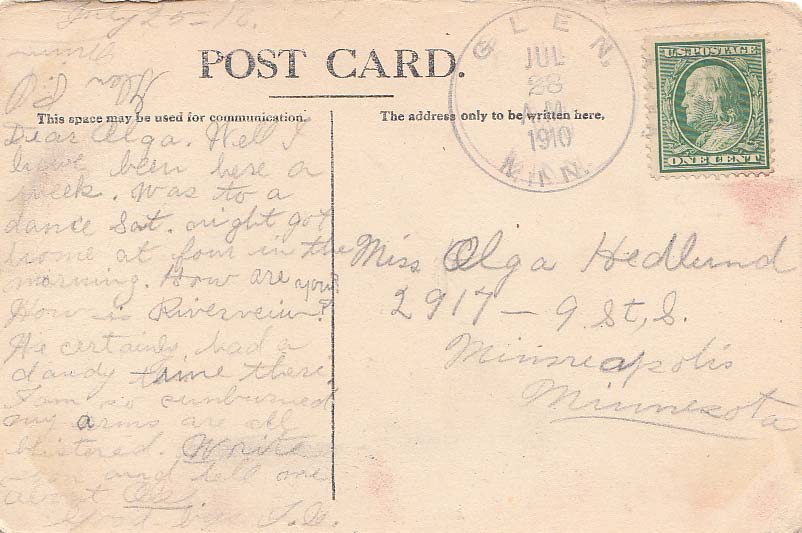 July 25-10.
Glen P.O
Minn
POST CARD.
This space may be used for communication.
The address only to be written here,
GLEN.
JUL
28
A.M.
1910
MINN.
U.S. POSTAGE
ONE CENT
Dear Olga. Well I
have been here a
week. Was to a
dance Sat. night got
home at four in the
morning. How are you?
How is Riverveiw?
We certainly had a
dandy time there.
I am so sunburned
my arms are all
blistered. Write
soon and tell me
about
Good-bye
Miss Olga Hedlund
2917 - 9 St, S.
Minneapolis
Minnesota